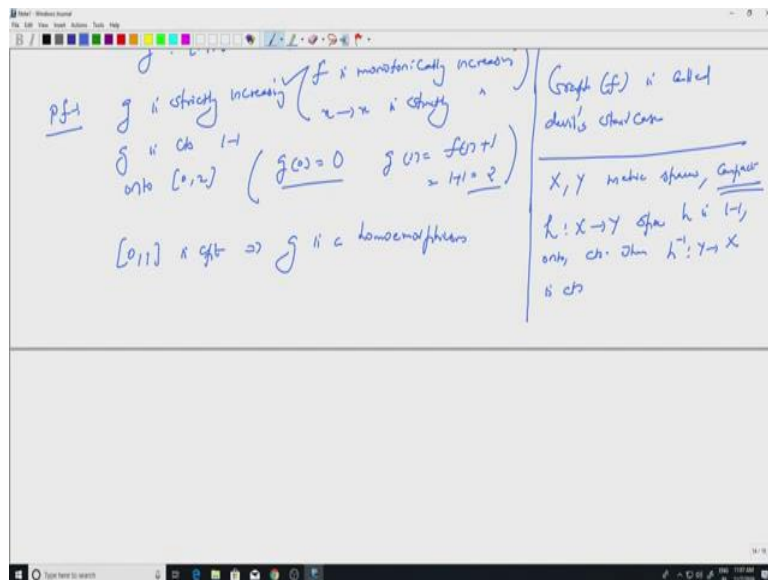 Note1 - Windows Journal
File Edit View Insert Actions Tools Help
Pf→ g is strictly increasing ( f is monotonically increasing
x→x is strictly " )
g is cts 1-1
onto [0,2] ( g(0) = 0 g(1) = f(1)+1
= 1+1 = 2 )
[0,1] is cpt ⇒ g is a homeomorphism
Graph (f) is called
devil's staircase
X, Y metric spaces, compact
h : X → Y h is 1-1,
onto, cts. Then h⁻¹ : Y → X
is cts
Type here to search
11:07 AM